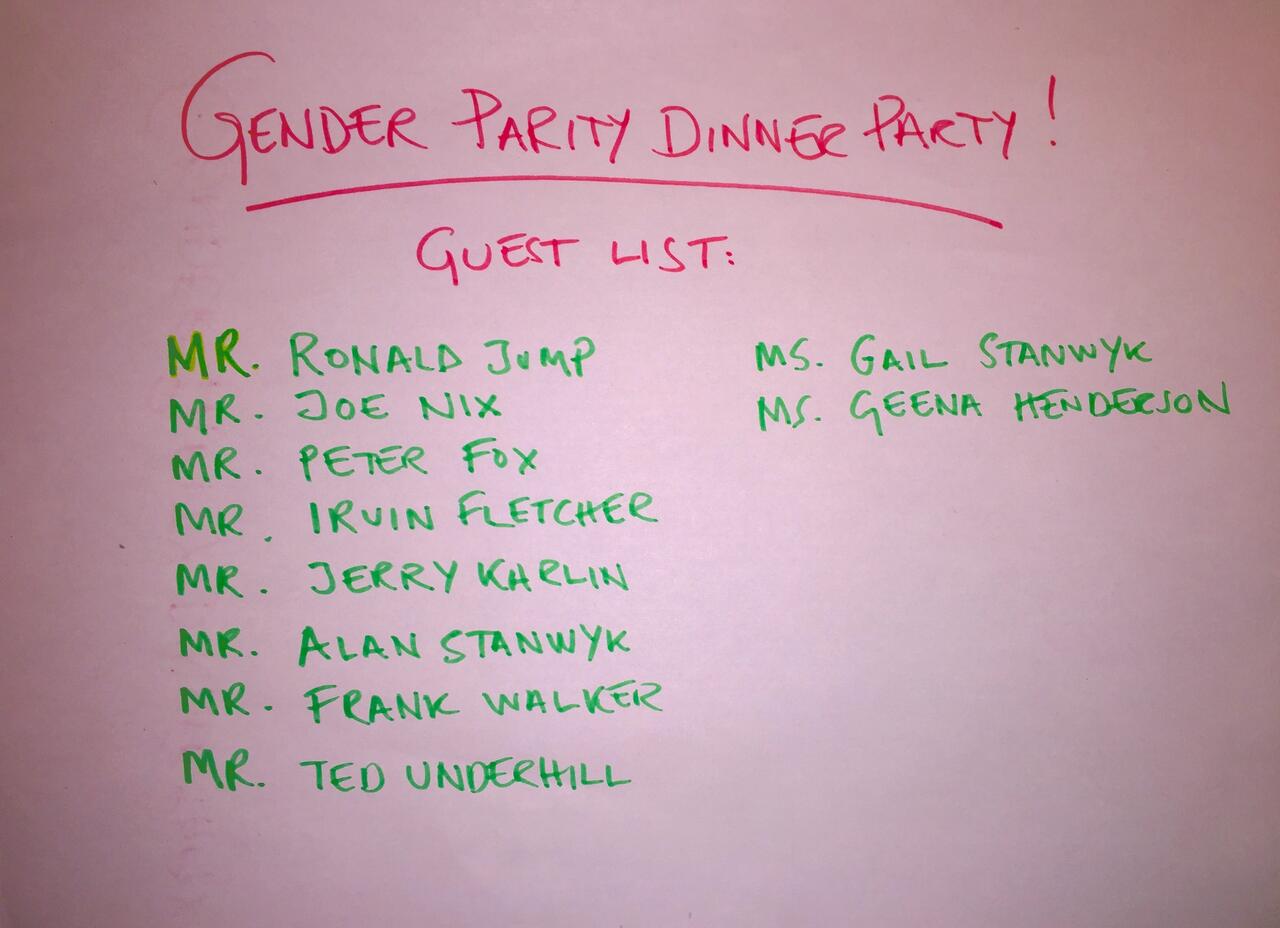 GENDER PARITY DINNER PARTY!
GUEST LIST:
MR. RONALD JUMP
MR. JOE NIX
MR. PETER FOX
MR. IRVIN FLETCHER
MR. JERRY KARLIN
MR. ALAN STANWYK
MR. FRANK WALKER
MR. TED UNDERHILL
MS. GAIL STANWYK
MS. GEENA HENDERSON